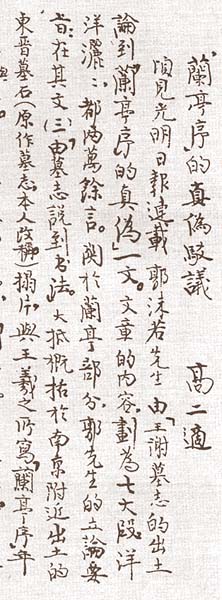 「蘭亭序」的真偽駁議　高二適
頃見光明日報連載郭沫若先生「由王謝墓志的出土
論到「蘭亭序」的真偽」一文。文章的內容，劃為七大段，洋
洋灑灑，都兩萬餘言。關於蘭亭部分，郭先生的立論要
旨：在其文（三）「由墓志說到书法」。大抵概括於南京附近出土的
東晉墓石（原作墓志，本人改稱）搨片，與王羲之所寫「蘭亭序」年